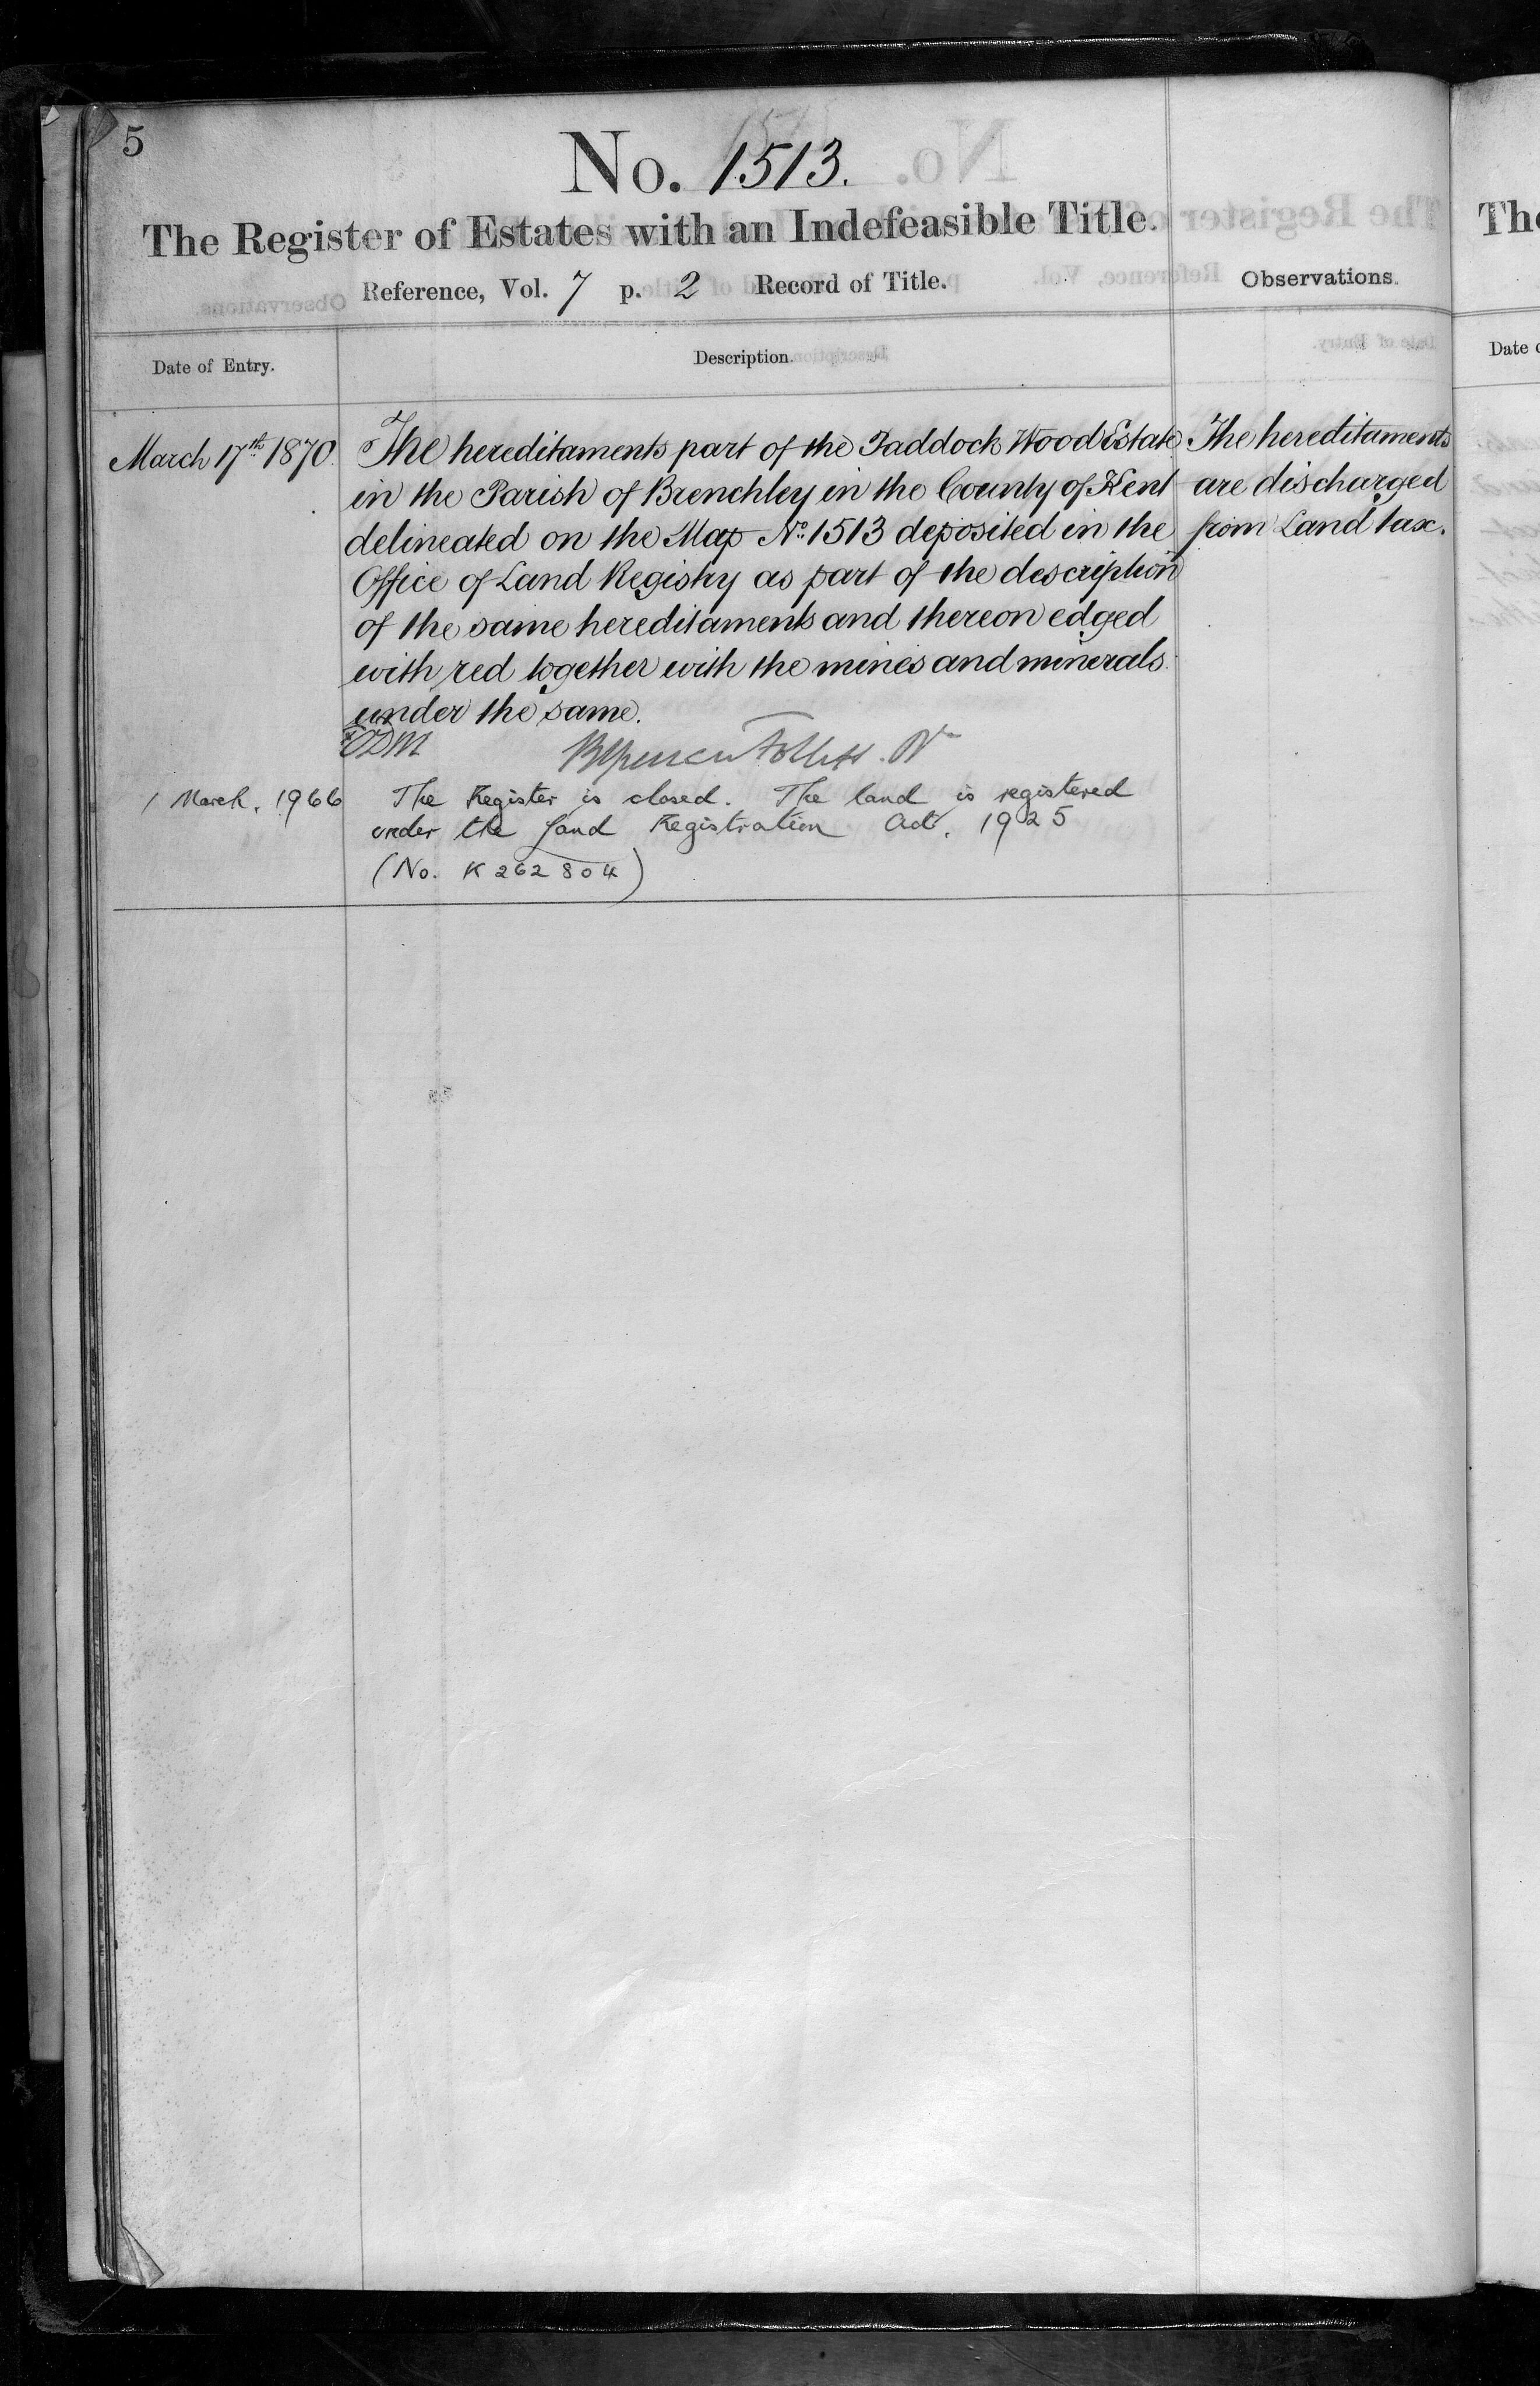 5
No. 1513.
The Register of Estates with an Indefeasible Title.
Reference, Vol. 7 p. 2 Record of Title.
Observations.
Date of Entry.
Description.
March 17th 1870.
The hereditaments part of the Paddock Wood Estate
in the Parish of Brenchley in the County of Kent
delineated on the Map No. 1513 deposited in the
Office of Land Registry as part of the description
of the same hereditaments and thereon edged
with red together with the mines and minerals
under the same.
The hereditaments
are discharged
from Land tax.
Follett. R
1 March. 1966
The Register is closed. The land is registered
under the Land Registration Act, 1925
(No. K 262804)
The
Date